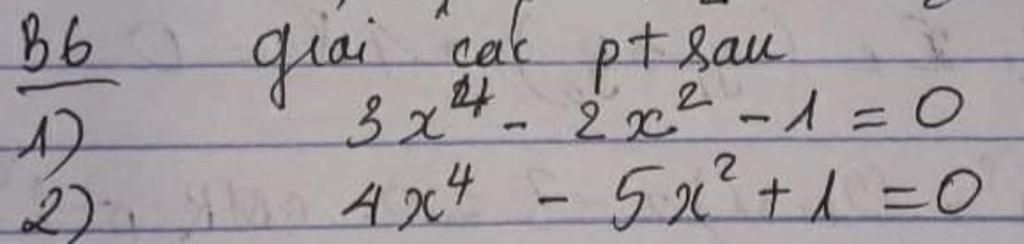 B6 giải các pt sau
1) 3x⁴ - 2x² - 1 = 0
2) 4x⁴ - 5x² + 1 = 0